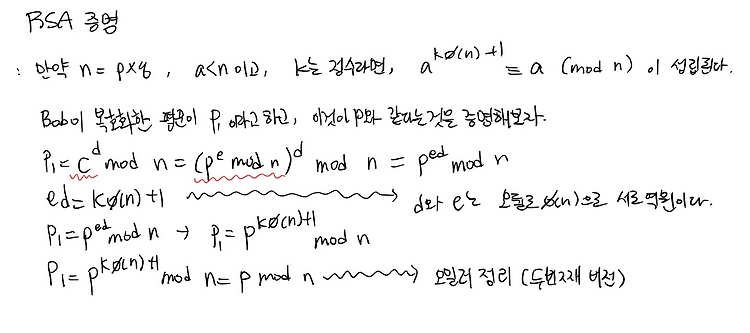 RSA 증명
: 만약 n = p×q , a<n 이고, k는 정수라면, a^{kø(n)+1} ≡ a (mod n) 이 성립된다.
Bob이 복호화한 평문이 P₁ 이라고 하고, 이것이 P와 같다는 것을 증명해보자.
P₁ = C^d mod n = (P^e mod n)^d mod n = P^{ed} mod n
ed = kø(n)+1 → d와 e는 모듈로 ø(n)으로 서로 역원이다.
P₁ = P^{ed} mod n → P₁ = P^{kø(n)+1} mod n
P₁ = P^{kø(n)+1} mod n = P mod n → 오일러 정리 (두번째 버전)